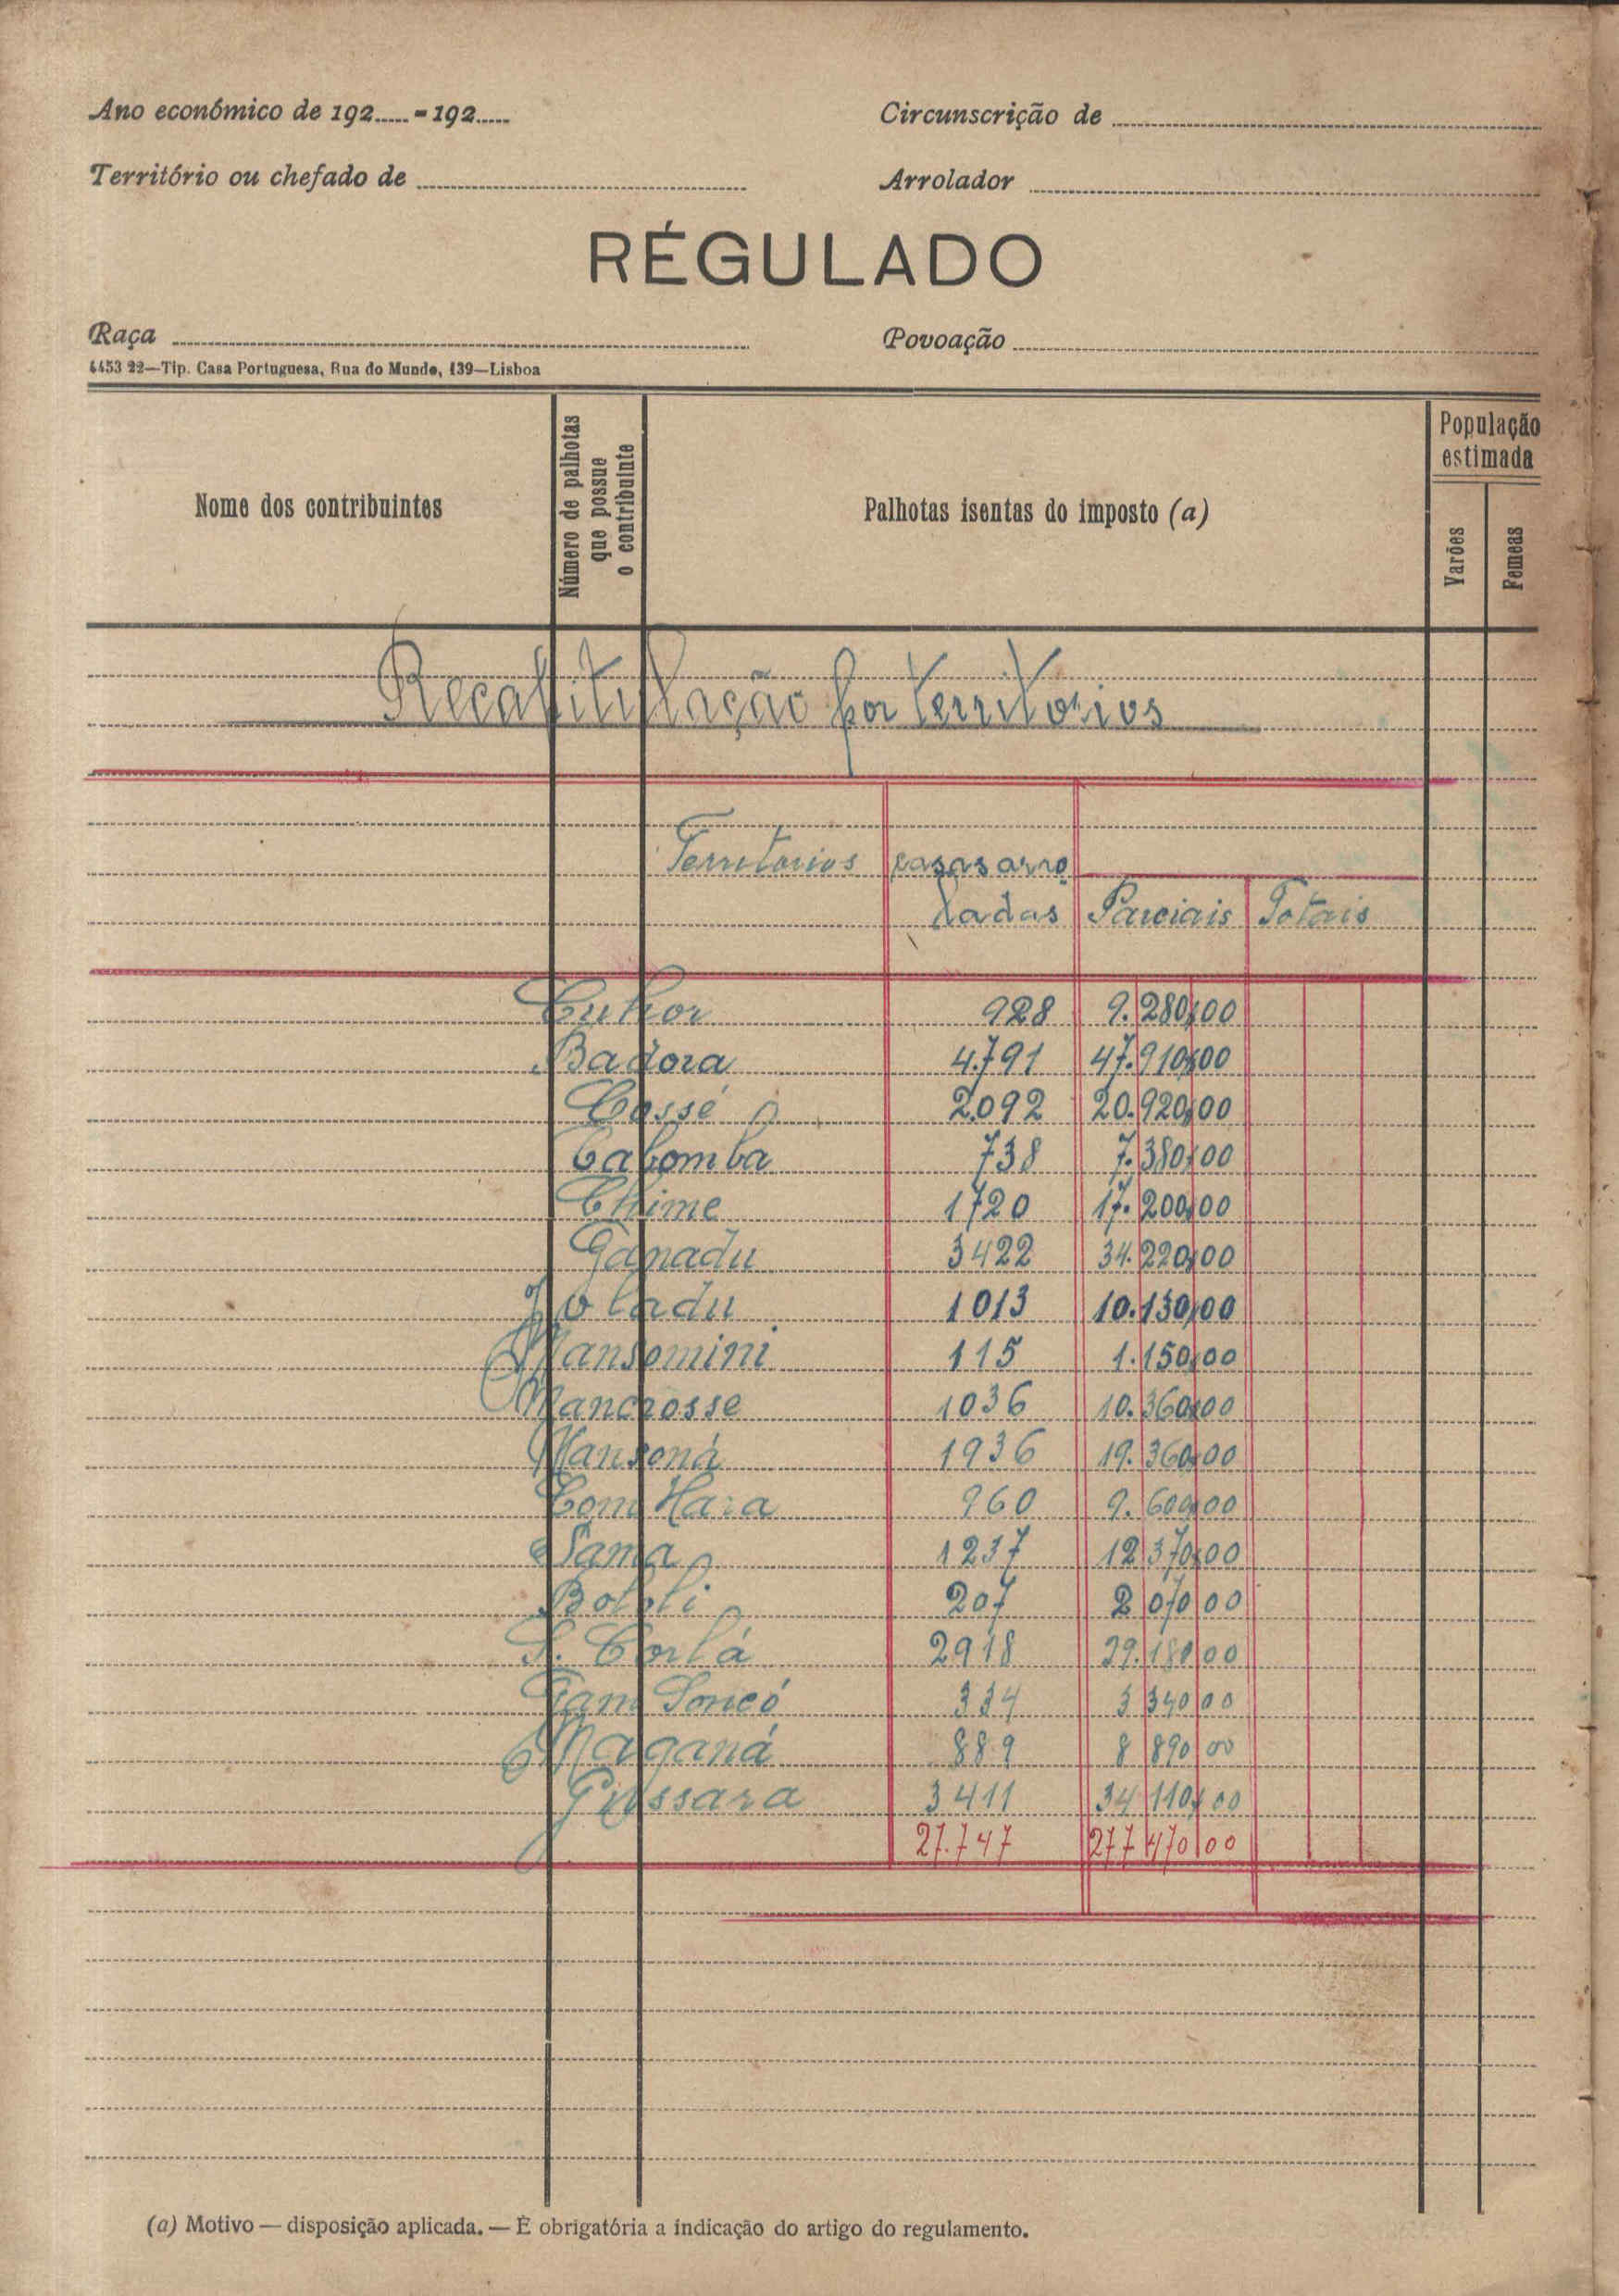 Ano económico de 192..... - 192.....
Circunscrição de
Território ou chefado de
Arrolador
RÉGULADO
Raça
Povoação
4453 22—Tip. Casa Portuguesa, Rua do Mundo, 139—Lisboa
Nome dos contribuintes
Número de palhotas que possue o contribuinte
Palhotas isentas do imposto (a)
População estimada
Varões
Femeas
Recapitulação por territorios
Territorios casas arro
ladas Parciais Totais
Cuhor 928 9.280$00
Badora 4.791 47.910$00
Cossé 2.092 20.920$00
Cabomba 738 7.380$00
Chime 1720 17.200$00
Ganadu 3422 34.220$00
Joladu 1013 10.130$00
Mansomini 115 1.150$00
Mancrosse 1036 10.360$00
Mansoná 1936 19.360$00
Com Hara 960 9.600$00
Sama 1237 12370$00
207 2 070 00
S. Corlá 2918 29.180 00
Gam Soncó 334 3 340 00
Maganá 889 8 890 00
Gussara 3411 34 110$00
27.747 277 470 00
(a) Motivo — disposição aplicada. — É obrigatória a indicação do artigo do regulamento.